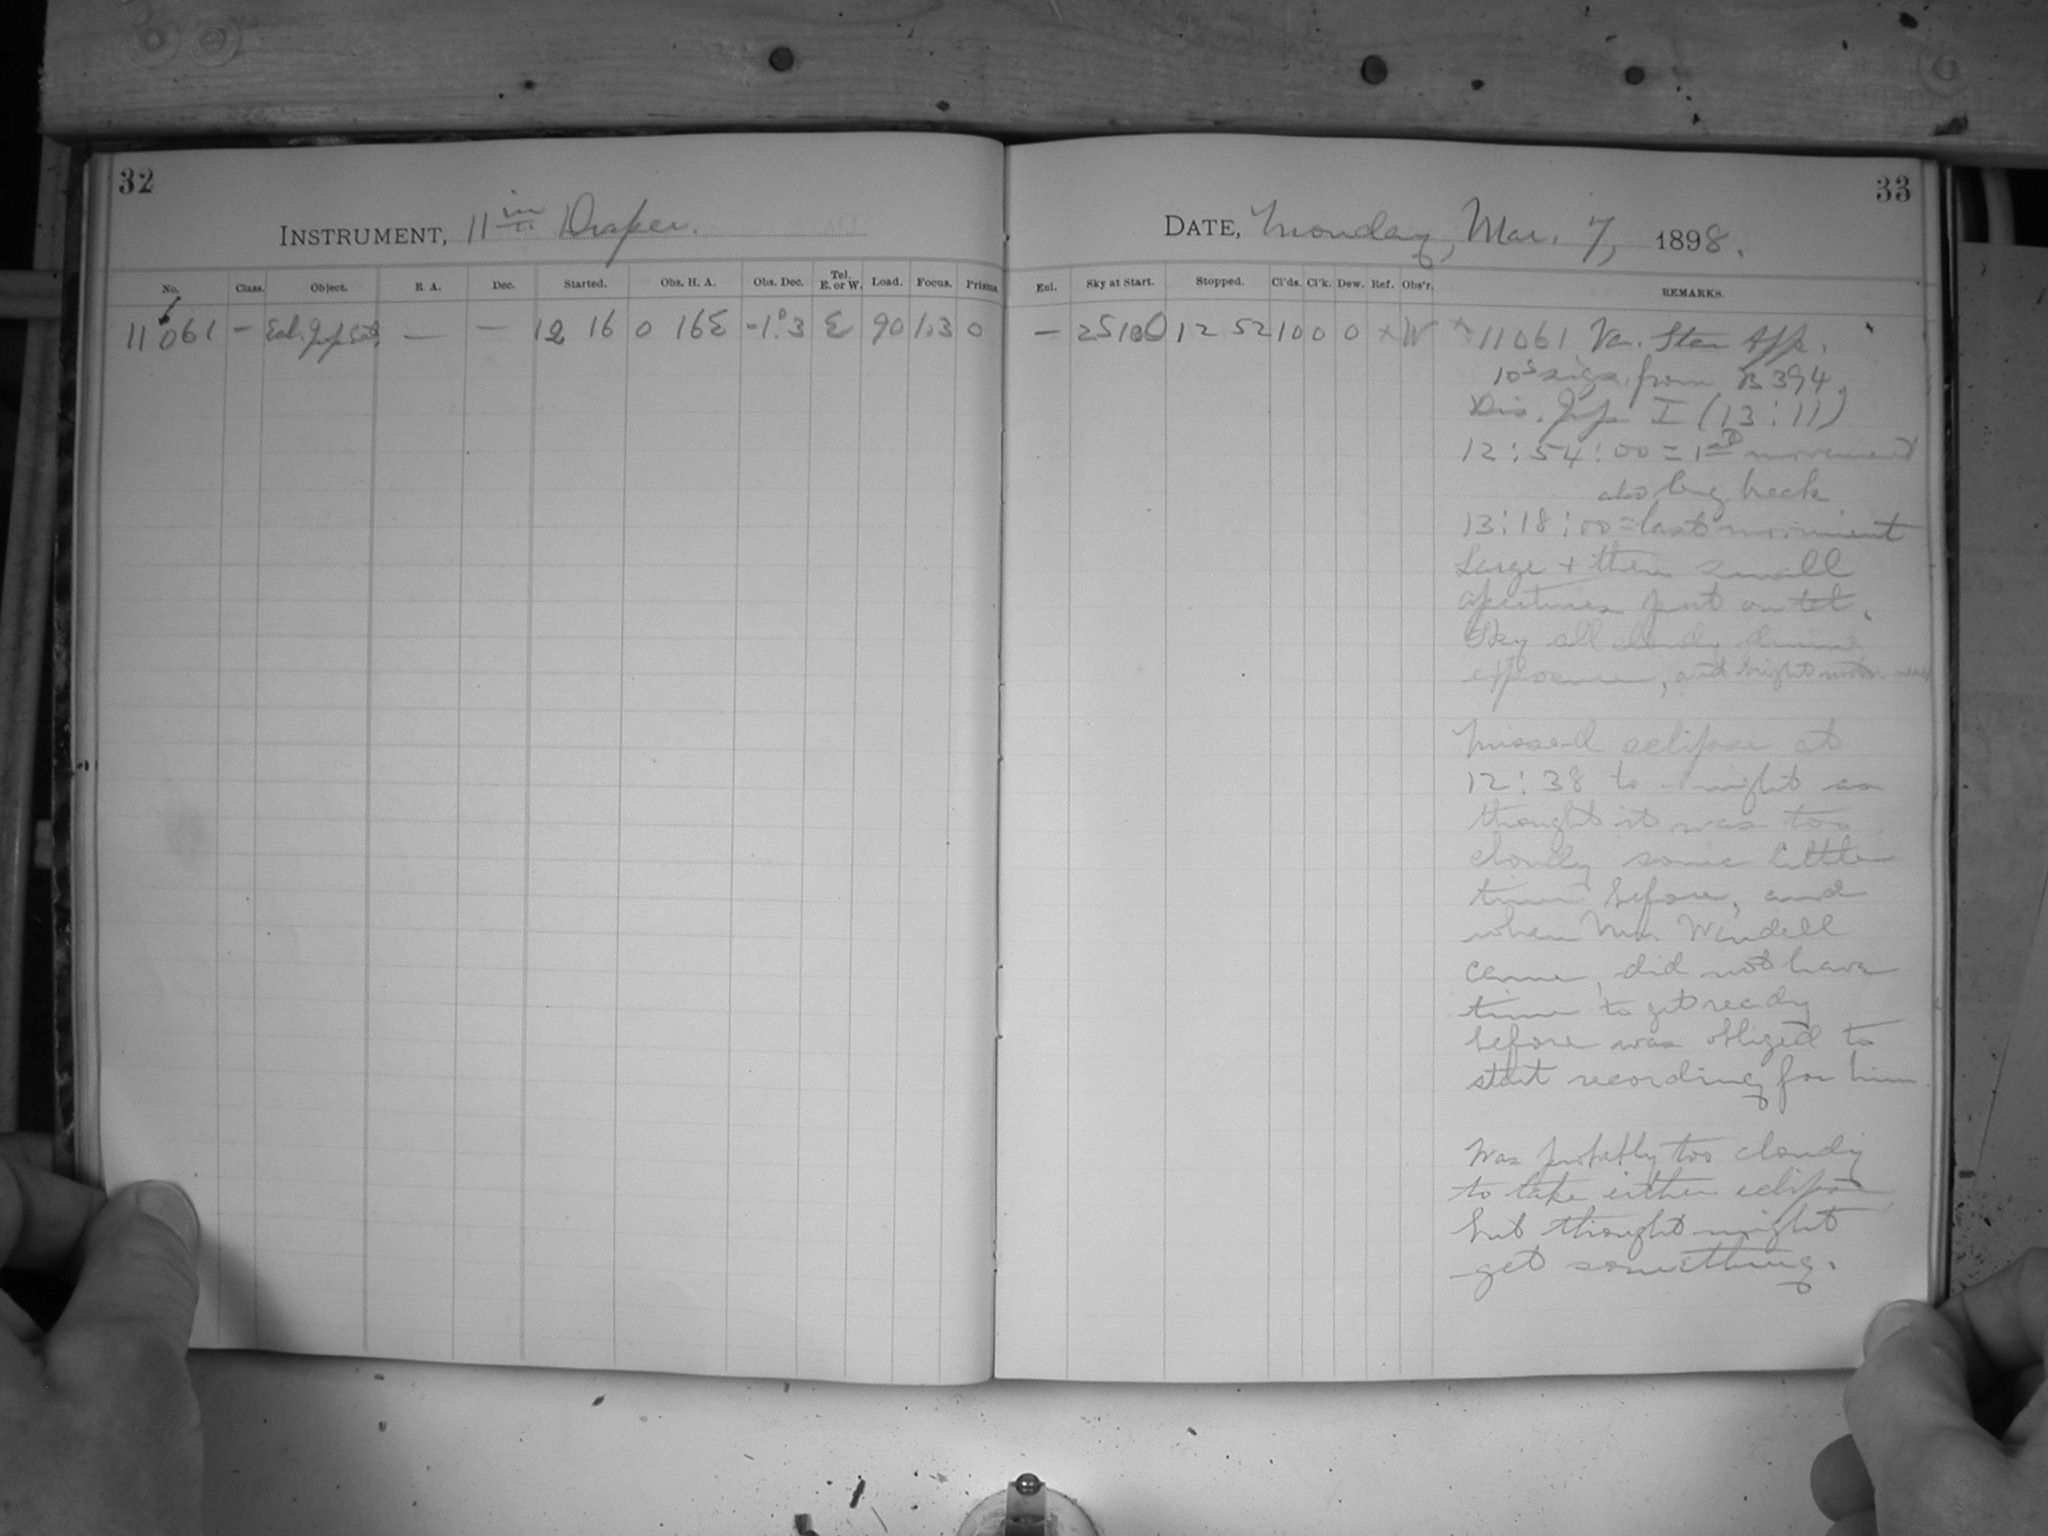 32
33
INSTRUMENT, 11 in Draper.
DATE, Monday, Mar. 7, 1898.
No. Class. Object. R. A. Dec. Started. Obs. H. A. Obs. Dec. Tel. E. or W. Load. Focus. Prisms. Enl. Sky at Start. Stopped. Cl'ds. Cl'k. Dew. Ref. Obs'r. REMARKS.
11061 — Ecl. Jup. Sat. — — 12 16 0 16E -1.°3 E 90 1.3 0 — 25100 12 52 10 0 0 x W x 11061 Var. Star App.
10s sigs. from B394.
Dis. Jup I (13:11)
12:54:00 = 1st movement
also long break
13:18:00 = last movement
Large + then small
apertures put on tel.
Sky all cloudy during
exposure, and bright moon near
Missed eclipse at
12:38 to-night as
thought it was too
cloudy some little
time before, and
when Mr. Wendell
came, did not have
time to get ready
before was obliged to
start recording for him
Was probably too cloudy
to take either eclipse
but thought might
get something.